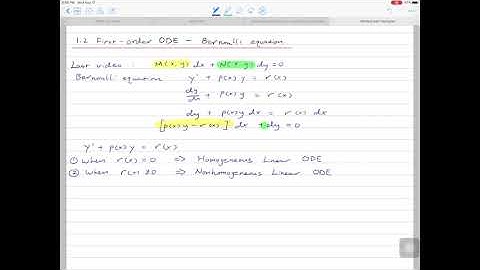 1.2 First-order ODE - Bernoulli equation
Last video : M(x,y) dx + N(x,y) dy = 0
Bernoulli equation y' + p(x) y = r(x)
dy/dx + p(x) y = r(x)
dy + p(x) y dx = r(x) dx
[p(x) y - r(x)] dx + dy = 0
y' + p(x) y = r(x)
① When r(x) = 0 ⇒ Homogeneous Linear ODE
② When r(x) ≠ 0 ⇒ Nonhomogeneous Linear ODE